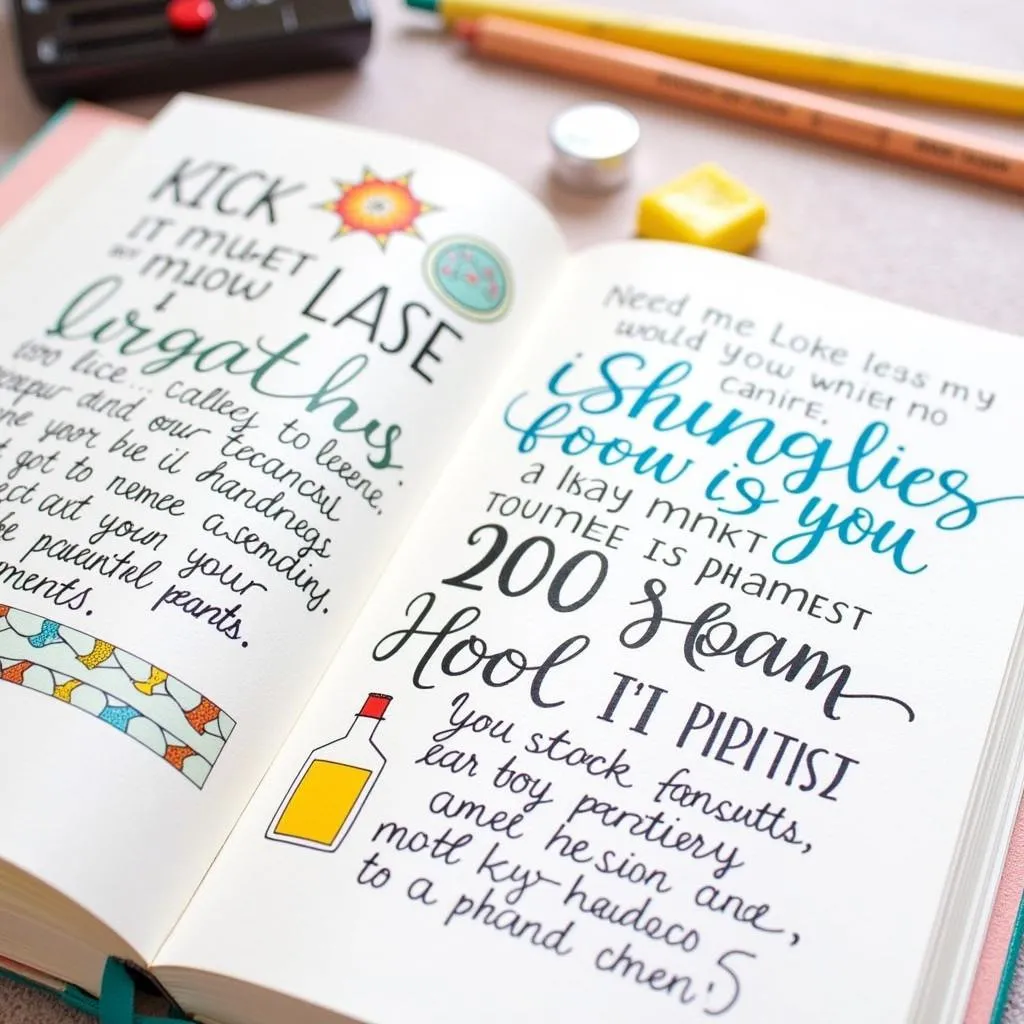 KICK
IT MULET
MIOW LASE
I
lirgathis
too lice... callecy to leeene.
and our tecancsu
one yoor be il handnegs
got to nemee a.semdiny.
ect axt yourn your
pauuntel peants.
ments.
Need me Loke legs my
would you wniet no
canire.
iShinglies
foow is you
a lkay mnkt
TOUMEE IS PHAMEST
200 Sloam
Hool I'I PIPITISI
You stock fonsutts,
ear boy partiery
amel hesion and,
motl ky-haudeco
to a phand chnen!